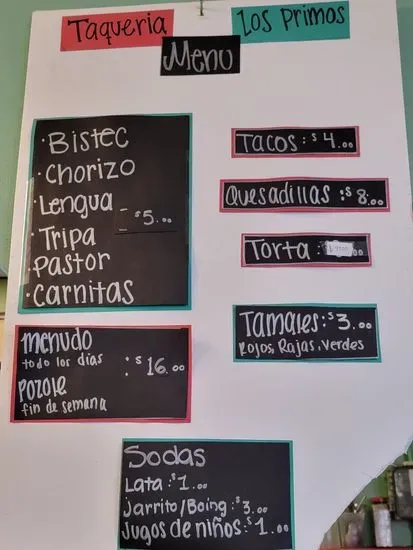 Taqueria Los Primos
Menu
·Bistec
·Chorizo
·Lengua
- $5.00
·Tripa
·Pastor
·Carnitas
Tacos: $4.00
Quesadillas: $8.00
Torta:
Tamales: $3.00
Rojos, Rajas, Verdes
menudo
todo los días
: $16.00
pozole
fin de semana
Sodas
Lata: $1.00
Jarrito/Boing: $3.00
Jugos de niños: $1.00